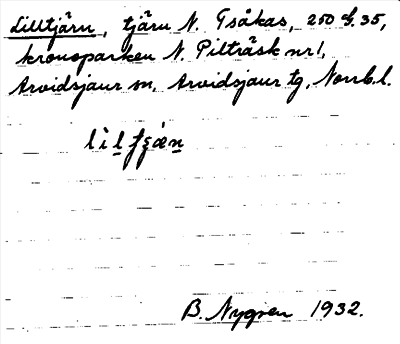 Lilltjärn, tjärn N. Tsåkas, 250 f. 35,
kronoparken N. Pilträsk nr 1,
Arvidsjaur sn, Arvidsjaur tg, Norrb. l.
B. Nygren 1932.